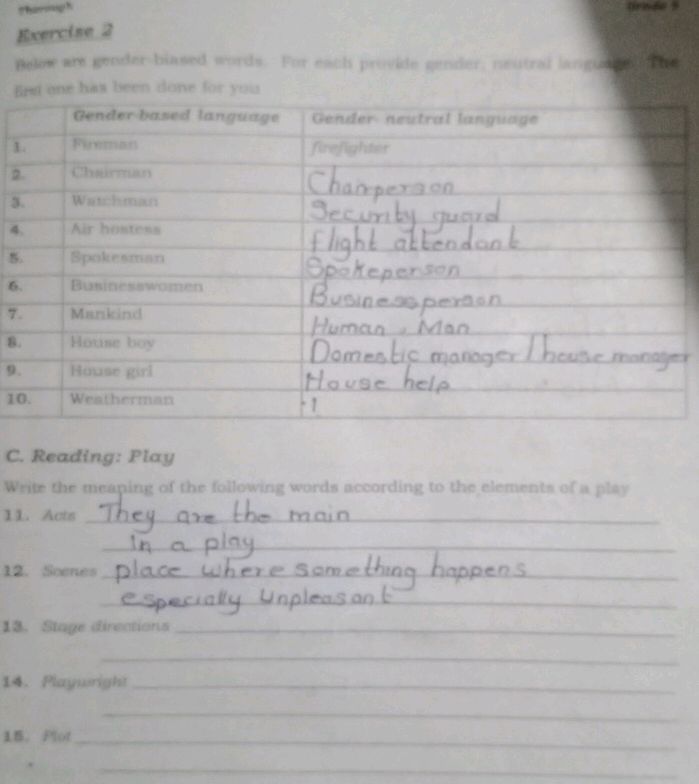 Thorough Grade 9
Exercise 2
Below are gender-biased words. For each provide gender, neutral language. The
first one has been done for you
Gender-based language Gender- neutral language
1. Fireman firefighter
2. Chairman Chairperson
3. Watchman Security guard
4. Air hostess flight attendant
5. Spokesman Spokeperson
6. Businesswomen Businessperson
7. Mankind Human , Man
8. House boy Domestic manager / house manager
9. House girl House help
10. Weatherman
C. Reading: Play
Write the meaning of the following words according to the elements of a play
11. Acts They are the main
in a play
12. Scenes place where something happens
especially Unpleasant
13. Stage directions
14. Playwright
15. Plot